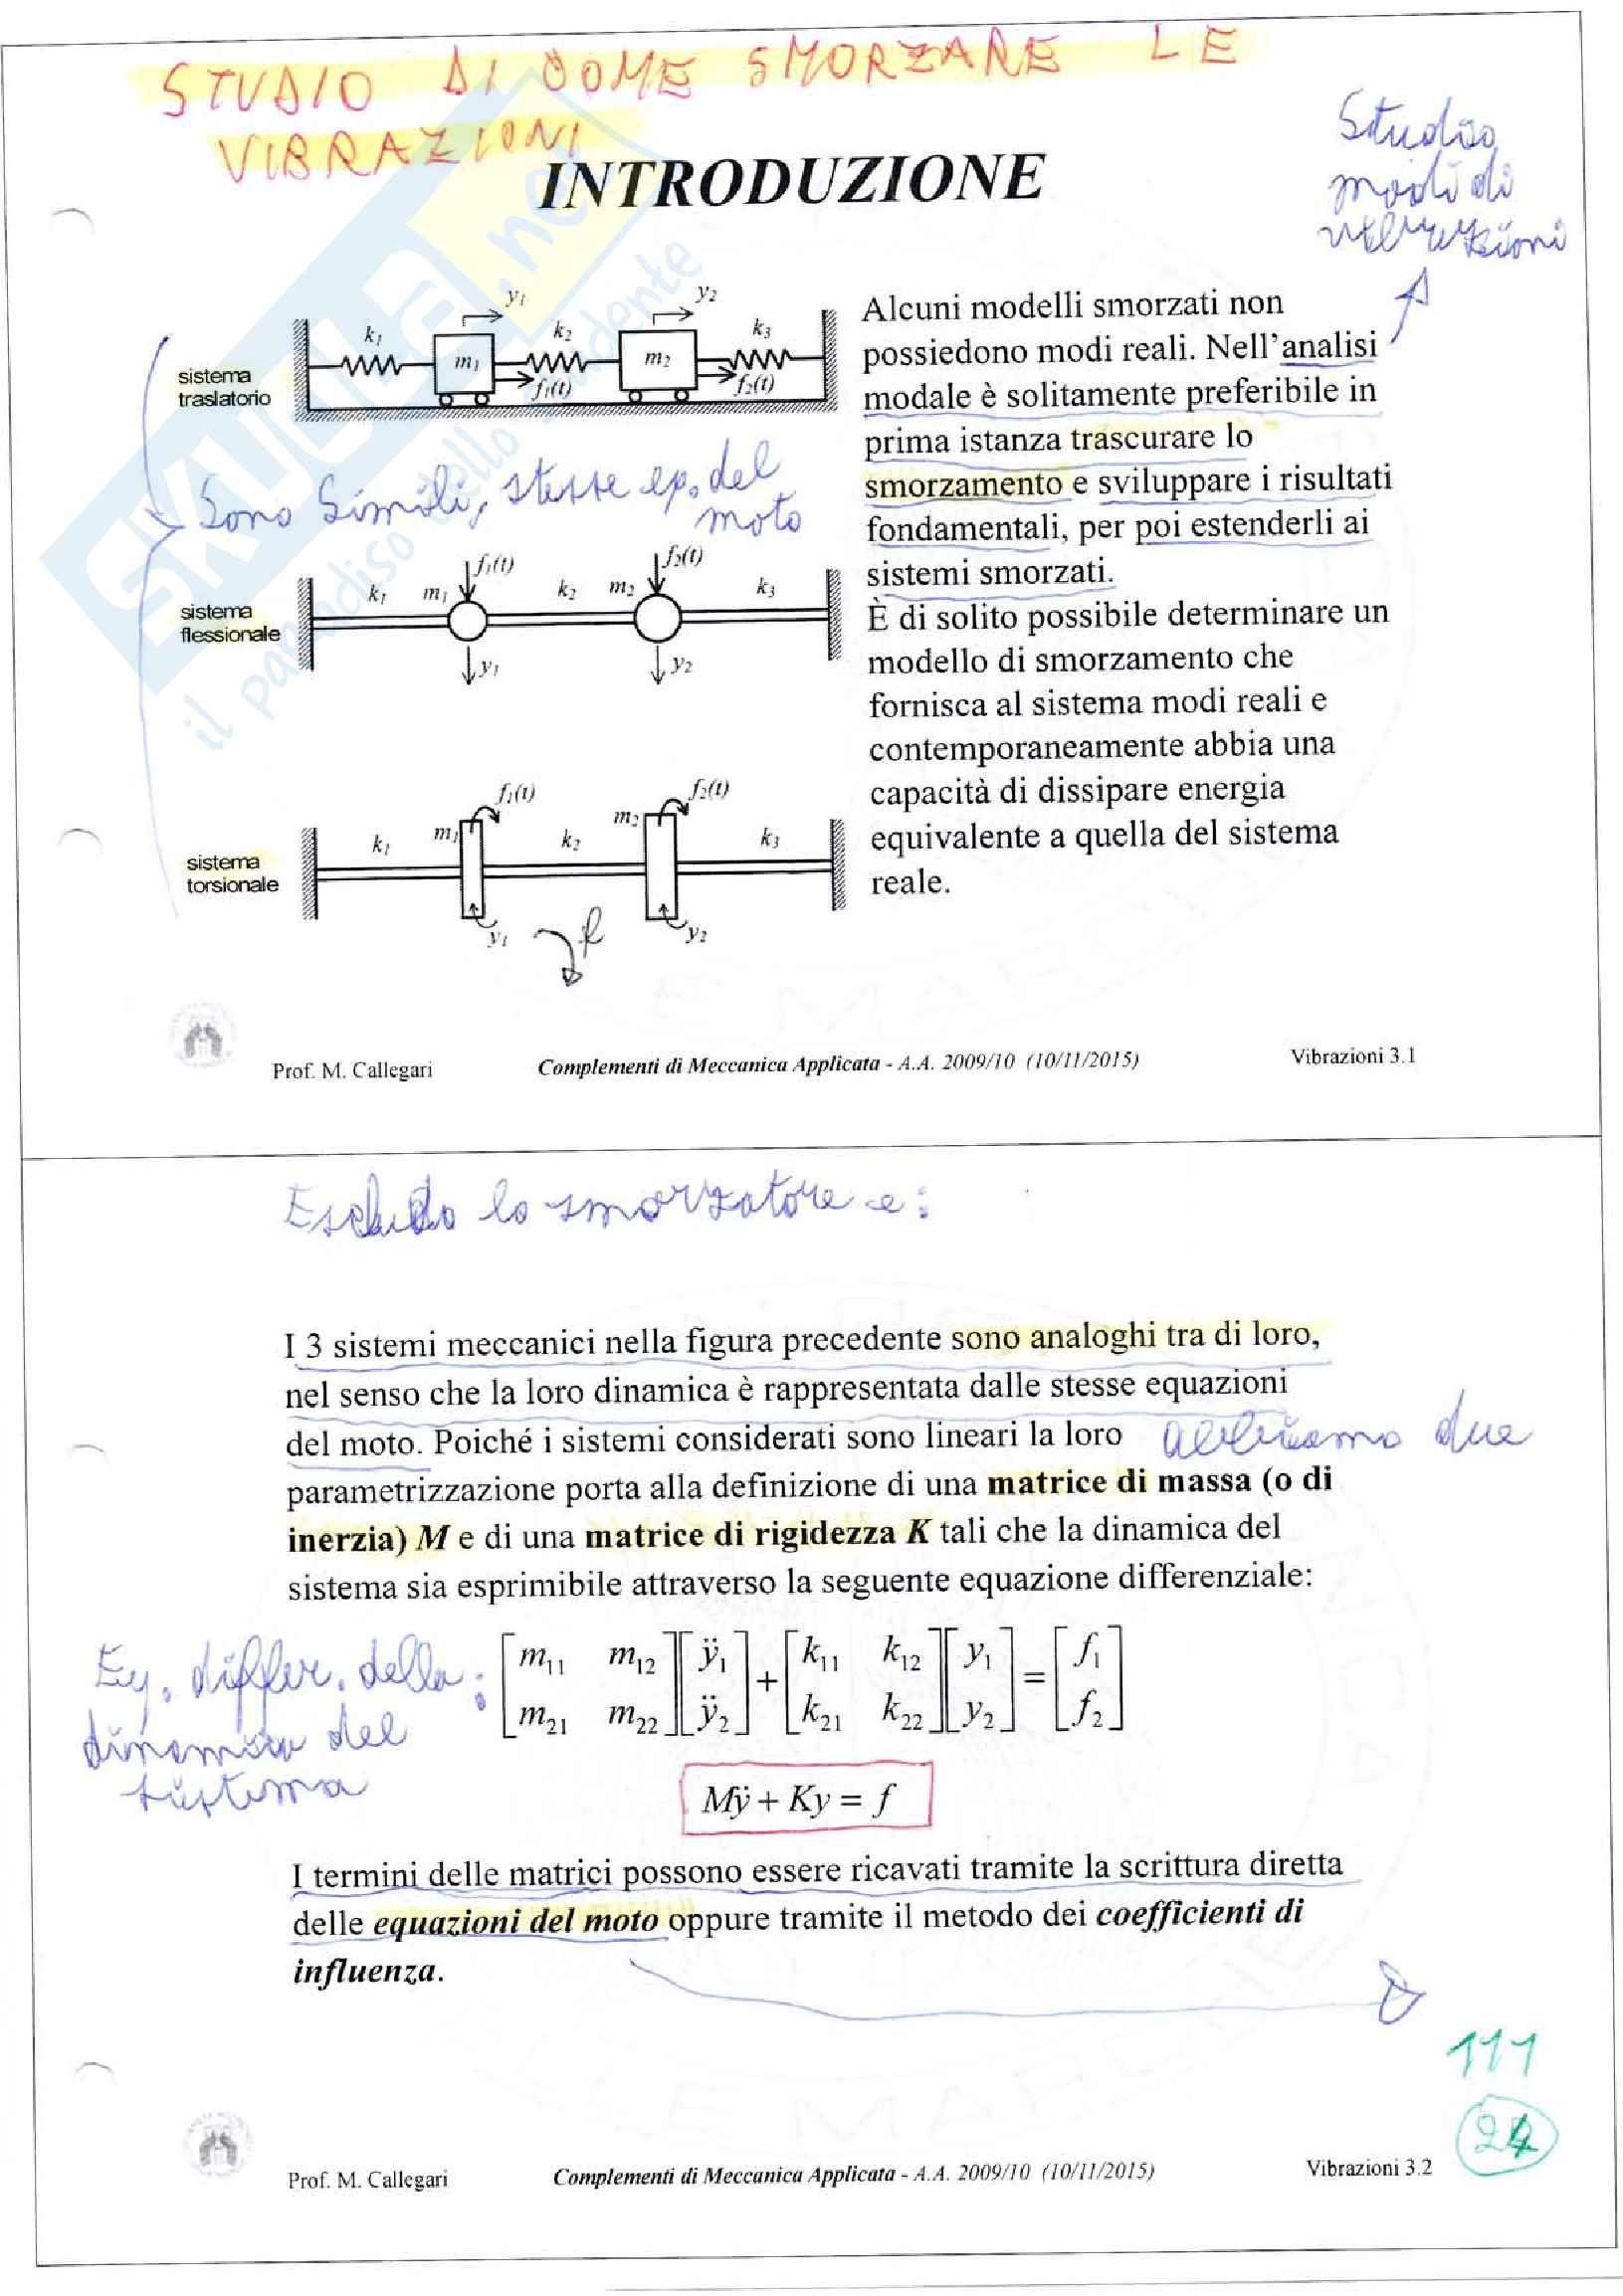 STUDIO DI COME SMORZARE LE
VIBRAZIONI
INTRODUZIONE
Studio
modi di
vibrazioni
SKUOLA.net
il paradiso dello studente
sistema
traslatorio
k1 m1 y1 k2 f1(t) m2 y2 k3 f2(t)
Sono simili, stesse eq. del
moto
sistema
flessionale
k1 m1 f1(t) k2 m2 f2(t) k3
y1 y2
sistema
torsionale
k1 m1 f1(t) k2 m2 f2(t) k3
y1 y2
Alcuni modelli smorzati non
possiedono modi reali. Nell'analisi
modale è solitamente preferibile in
prima istanza trascurare lo
smorzamento e sviluppare i risultati
fondamentali, per poi estenderli ai
sistemi smorzati.
È di solito possibile determinare un
modello di smorzamento che
fornisca al sistema modi reali e
contemporaneamente abbia una
capacità di dissipare energia
equivalente a quella del sistema
reale.
Prof. M. Callegari Complementi di Meccanica Applicata - A.A. 2009/10 (10/11/2015) Vibrazioni 3.1
Escludo lo smorzatore e:
I 3 sistemi meccanici nella figura precedente sono analoghi tra di loro,
nel senso che la loro dinamica è rappresentata dalle stesse equazioni
del moto. Poiché i sistemi considerati sono lineari la loro abbiamo due
parametrizzazione porta alla definizione di una matrice di massa (o di
inerzia) M e di una matrice di rigidezza K tali che la dinamica del
sistema sia esprimibile attraverso la seguente equazione differenziale:
Eq. differ. della :
dinamica del
sistema
[m11 m12] [ÿ1] + [k11 k12] [y1] = [f1]
[m21 m22] [ÿ2] [k21 k22] [y2] [f2]
Mÿ + Ky = f
I termini delle matrici possono essere ricavati tramite la scrittura diretta
delle equazioni del moto oppure tramite il metodo dei coefficienti di
influenza.
111
Prof. M. Callegari Complementi di Meccanica Applicata - A.A. 2009/10 (10/11/2015) Vibrazioni 3.2